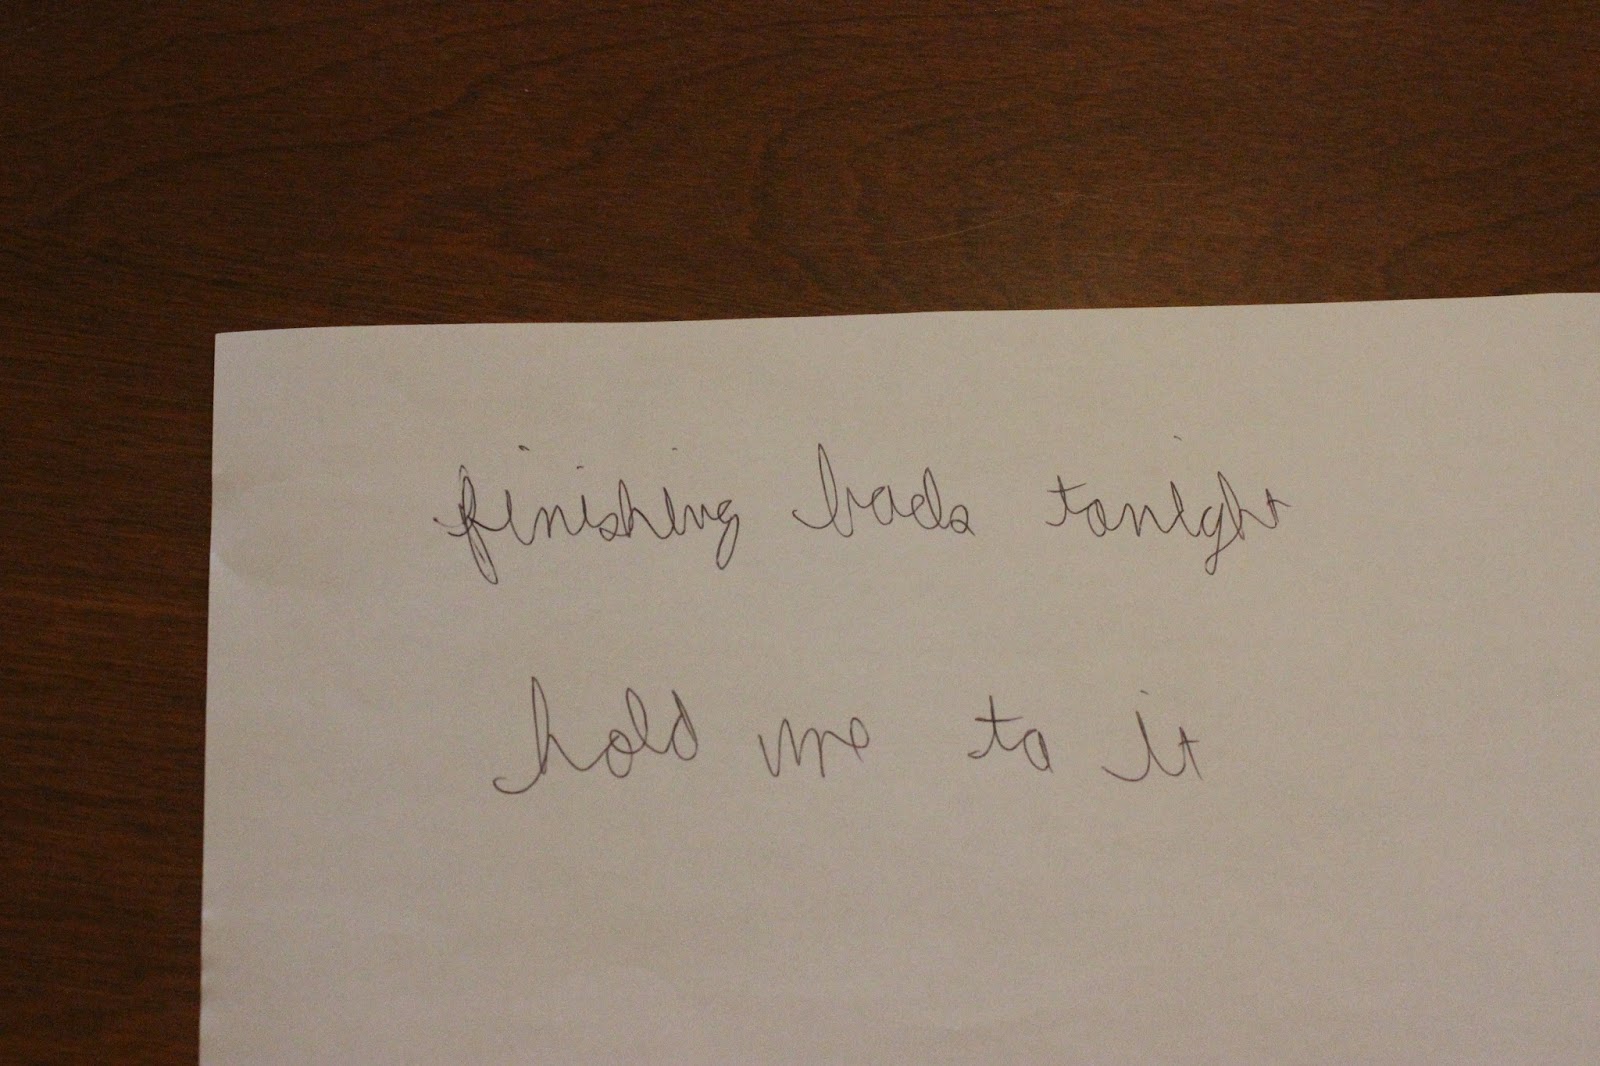 finishing bads tonight
hold me to it